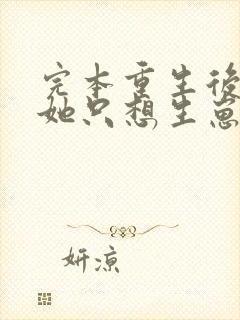 完本重生後
她只想生崽
妍凉